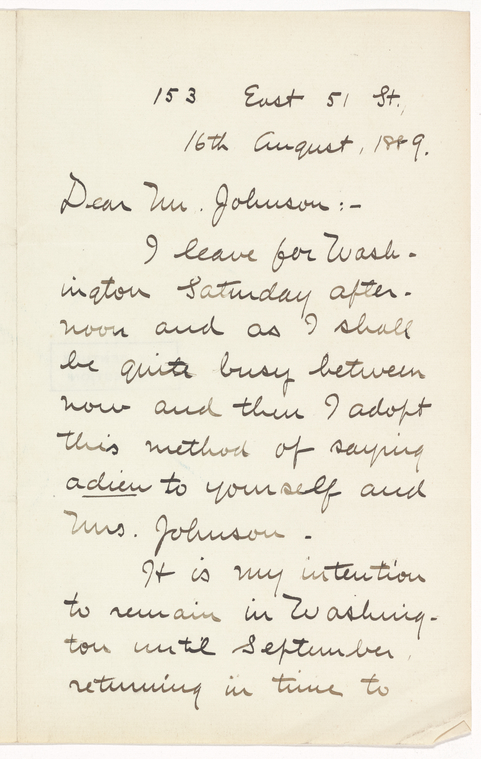 153 East 51 St.,
16th August, 1889.
Dear Mr. Johnson:-
I leave for Wash-
ington Saturday after-
noon and as I shall
be quite busy between
now and then I adopt
this method of saying
adieu to yourself and
Mrs. Johnson -
It is my intention
to remain in Washing-
ton until September,
returning in time to